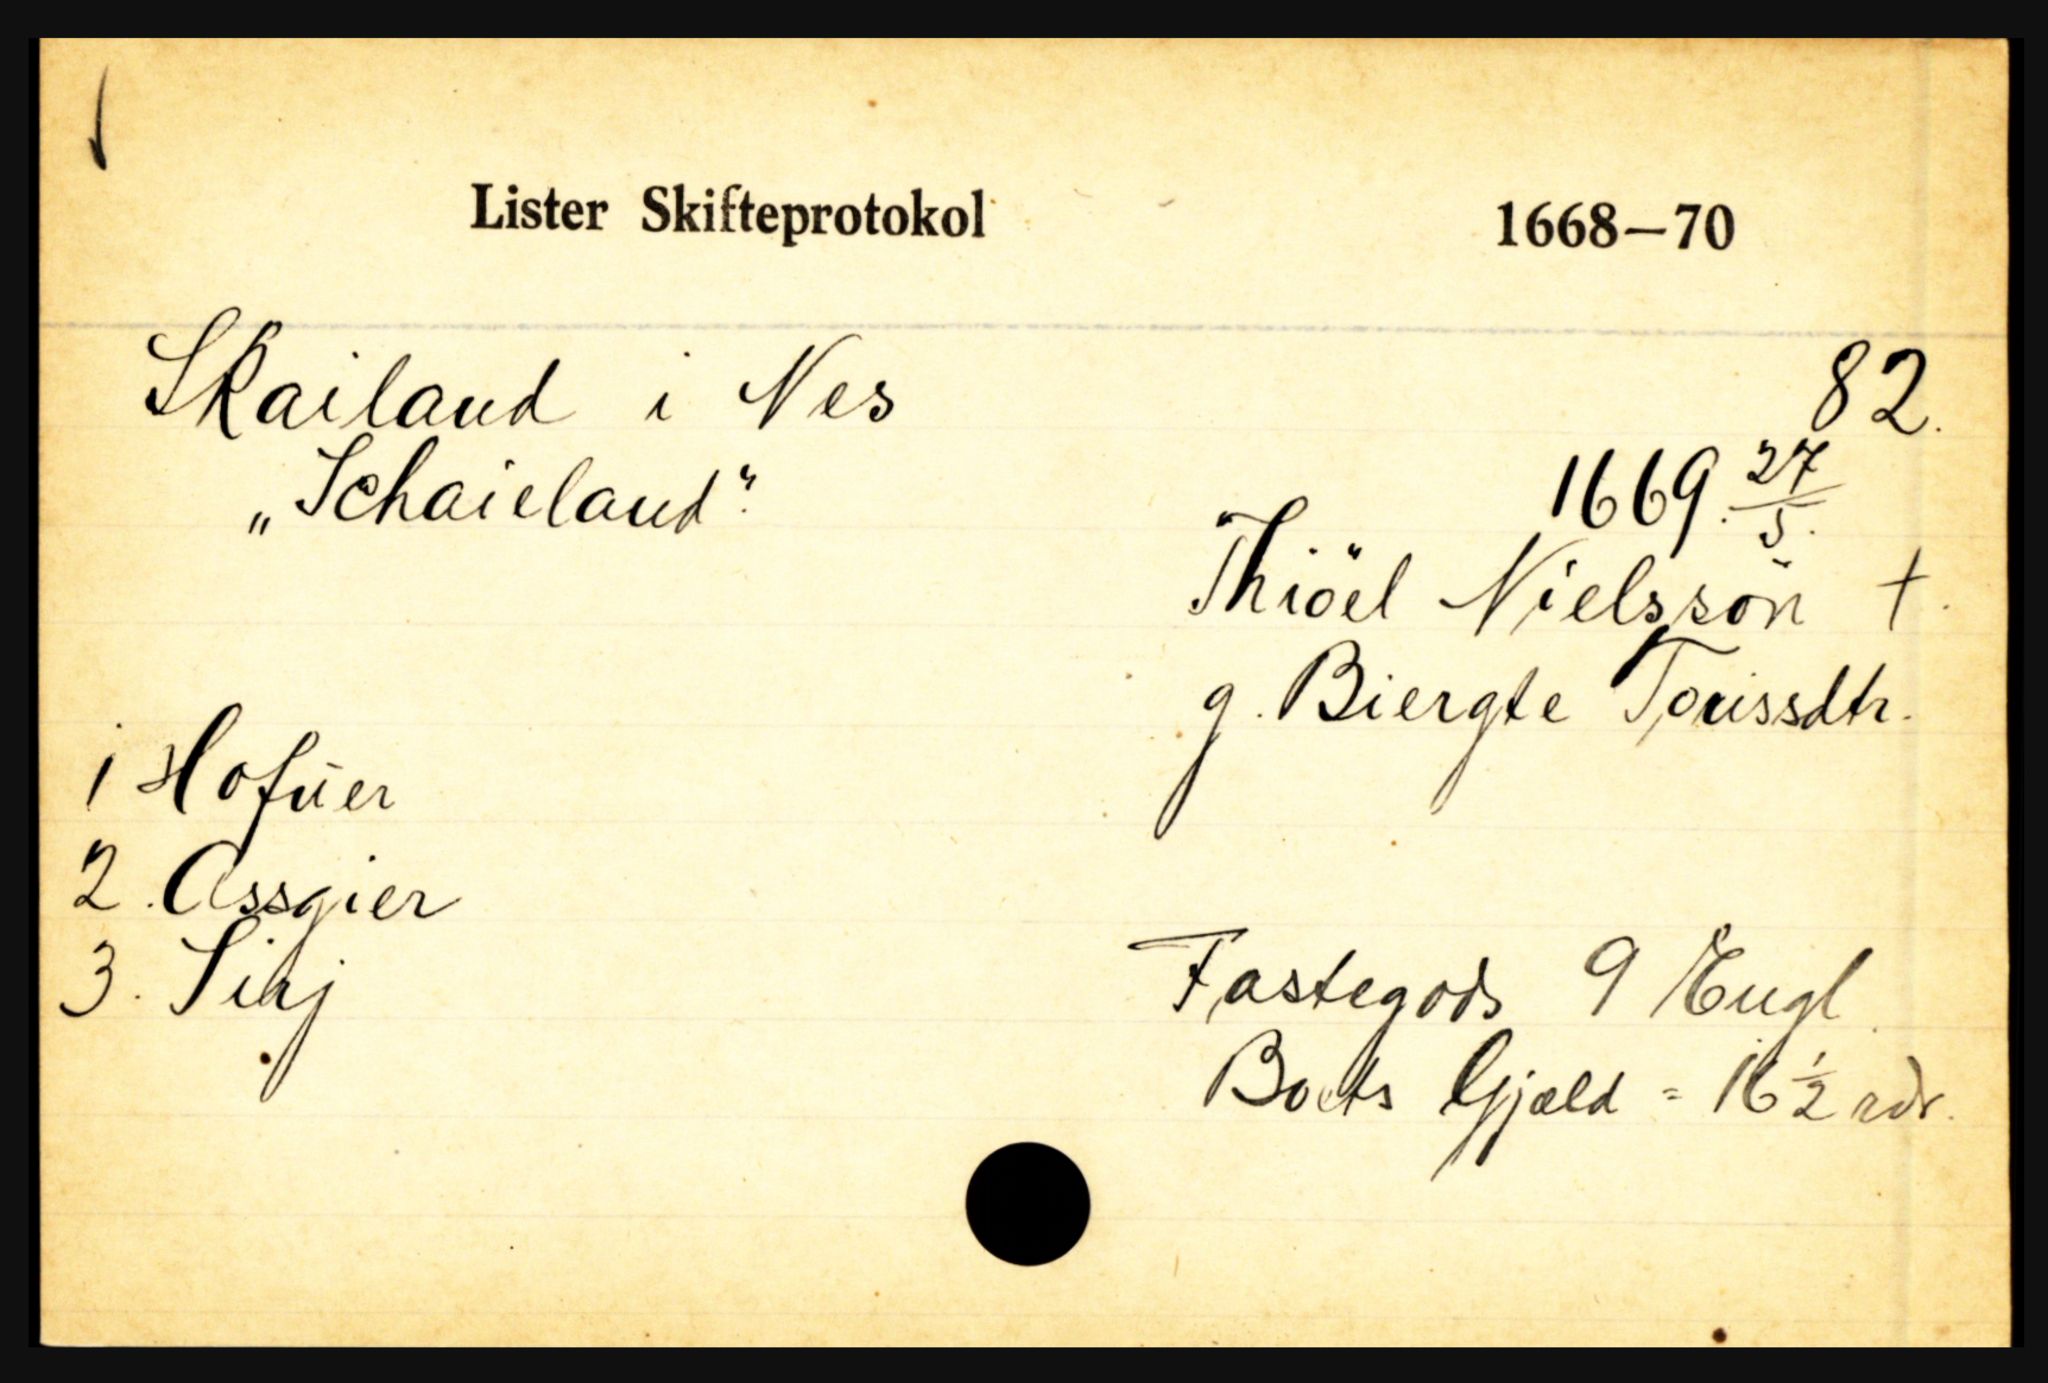 Lister Skifteprotokol 1668–70
Skailand i Nes 82.
„Schaieland“. 1669. 27/5.
Thiöel Nielssön †.
g. Biergte Torissdtr.
1 Hofuer
2. Assgier
3. Sirj
Fastegods 9 Engl.
Boets Gjæld = 16 1/2 rdr.